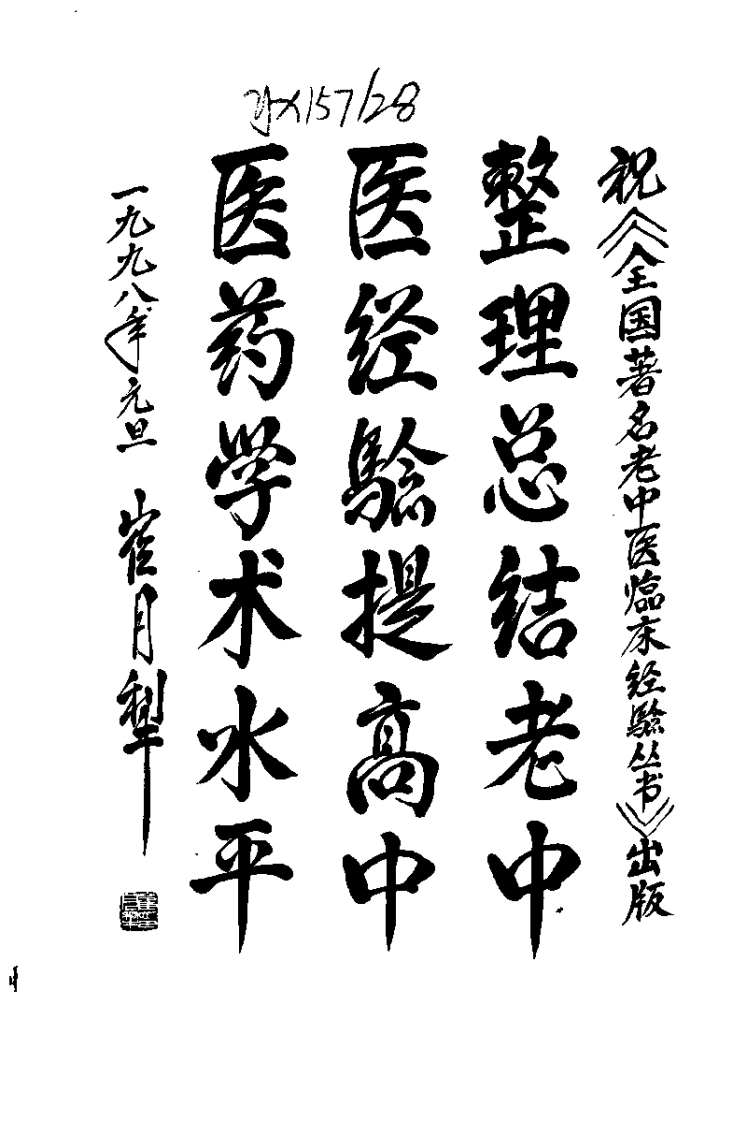 祝《全国著名老中医临床经验丛书》出版
整理总结老中
医经验提高中
医药学术水平
一九九八年元旦 崔月犁